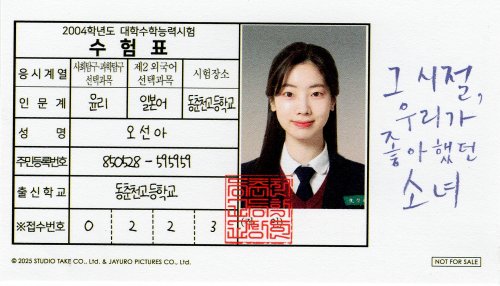 2004학년도 대학수학능력시험
수 험 표
응시계열 사회탐구·과학탐구 선택과목 제2외국어 선택과목 시험장소
인문계 윤리 일본어 동춘천고등학교
성 명 오선아
주민등록번호 850528 - 595959
출신학교 동춘천고등학교
※접수번호 0 2 2 3
그 시절,
우리가
좋아했던
소녀
© 2025 STUDIO TAKE CO., Ltd. & JAYURO PICTURES CO., Ltd.
NOT FOR SALE